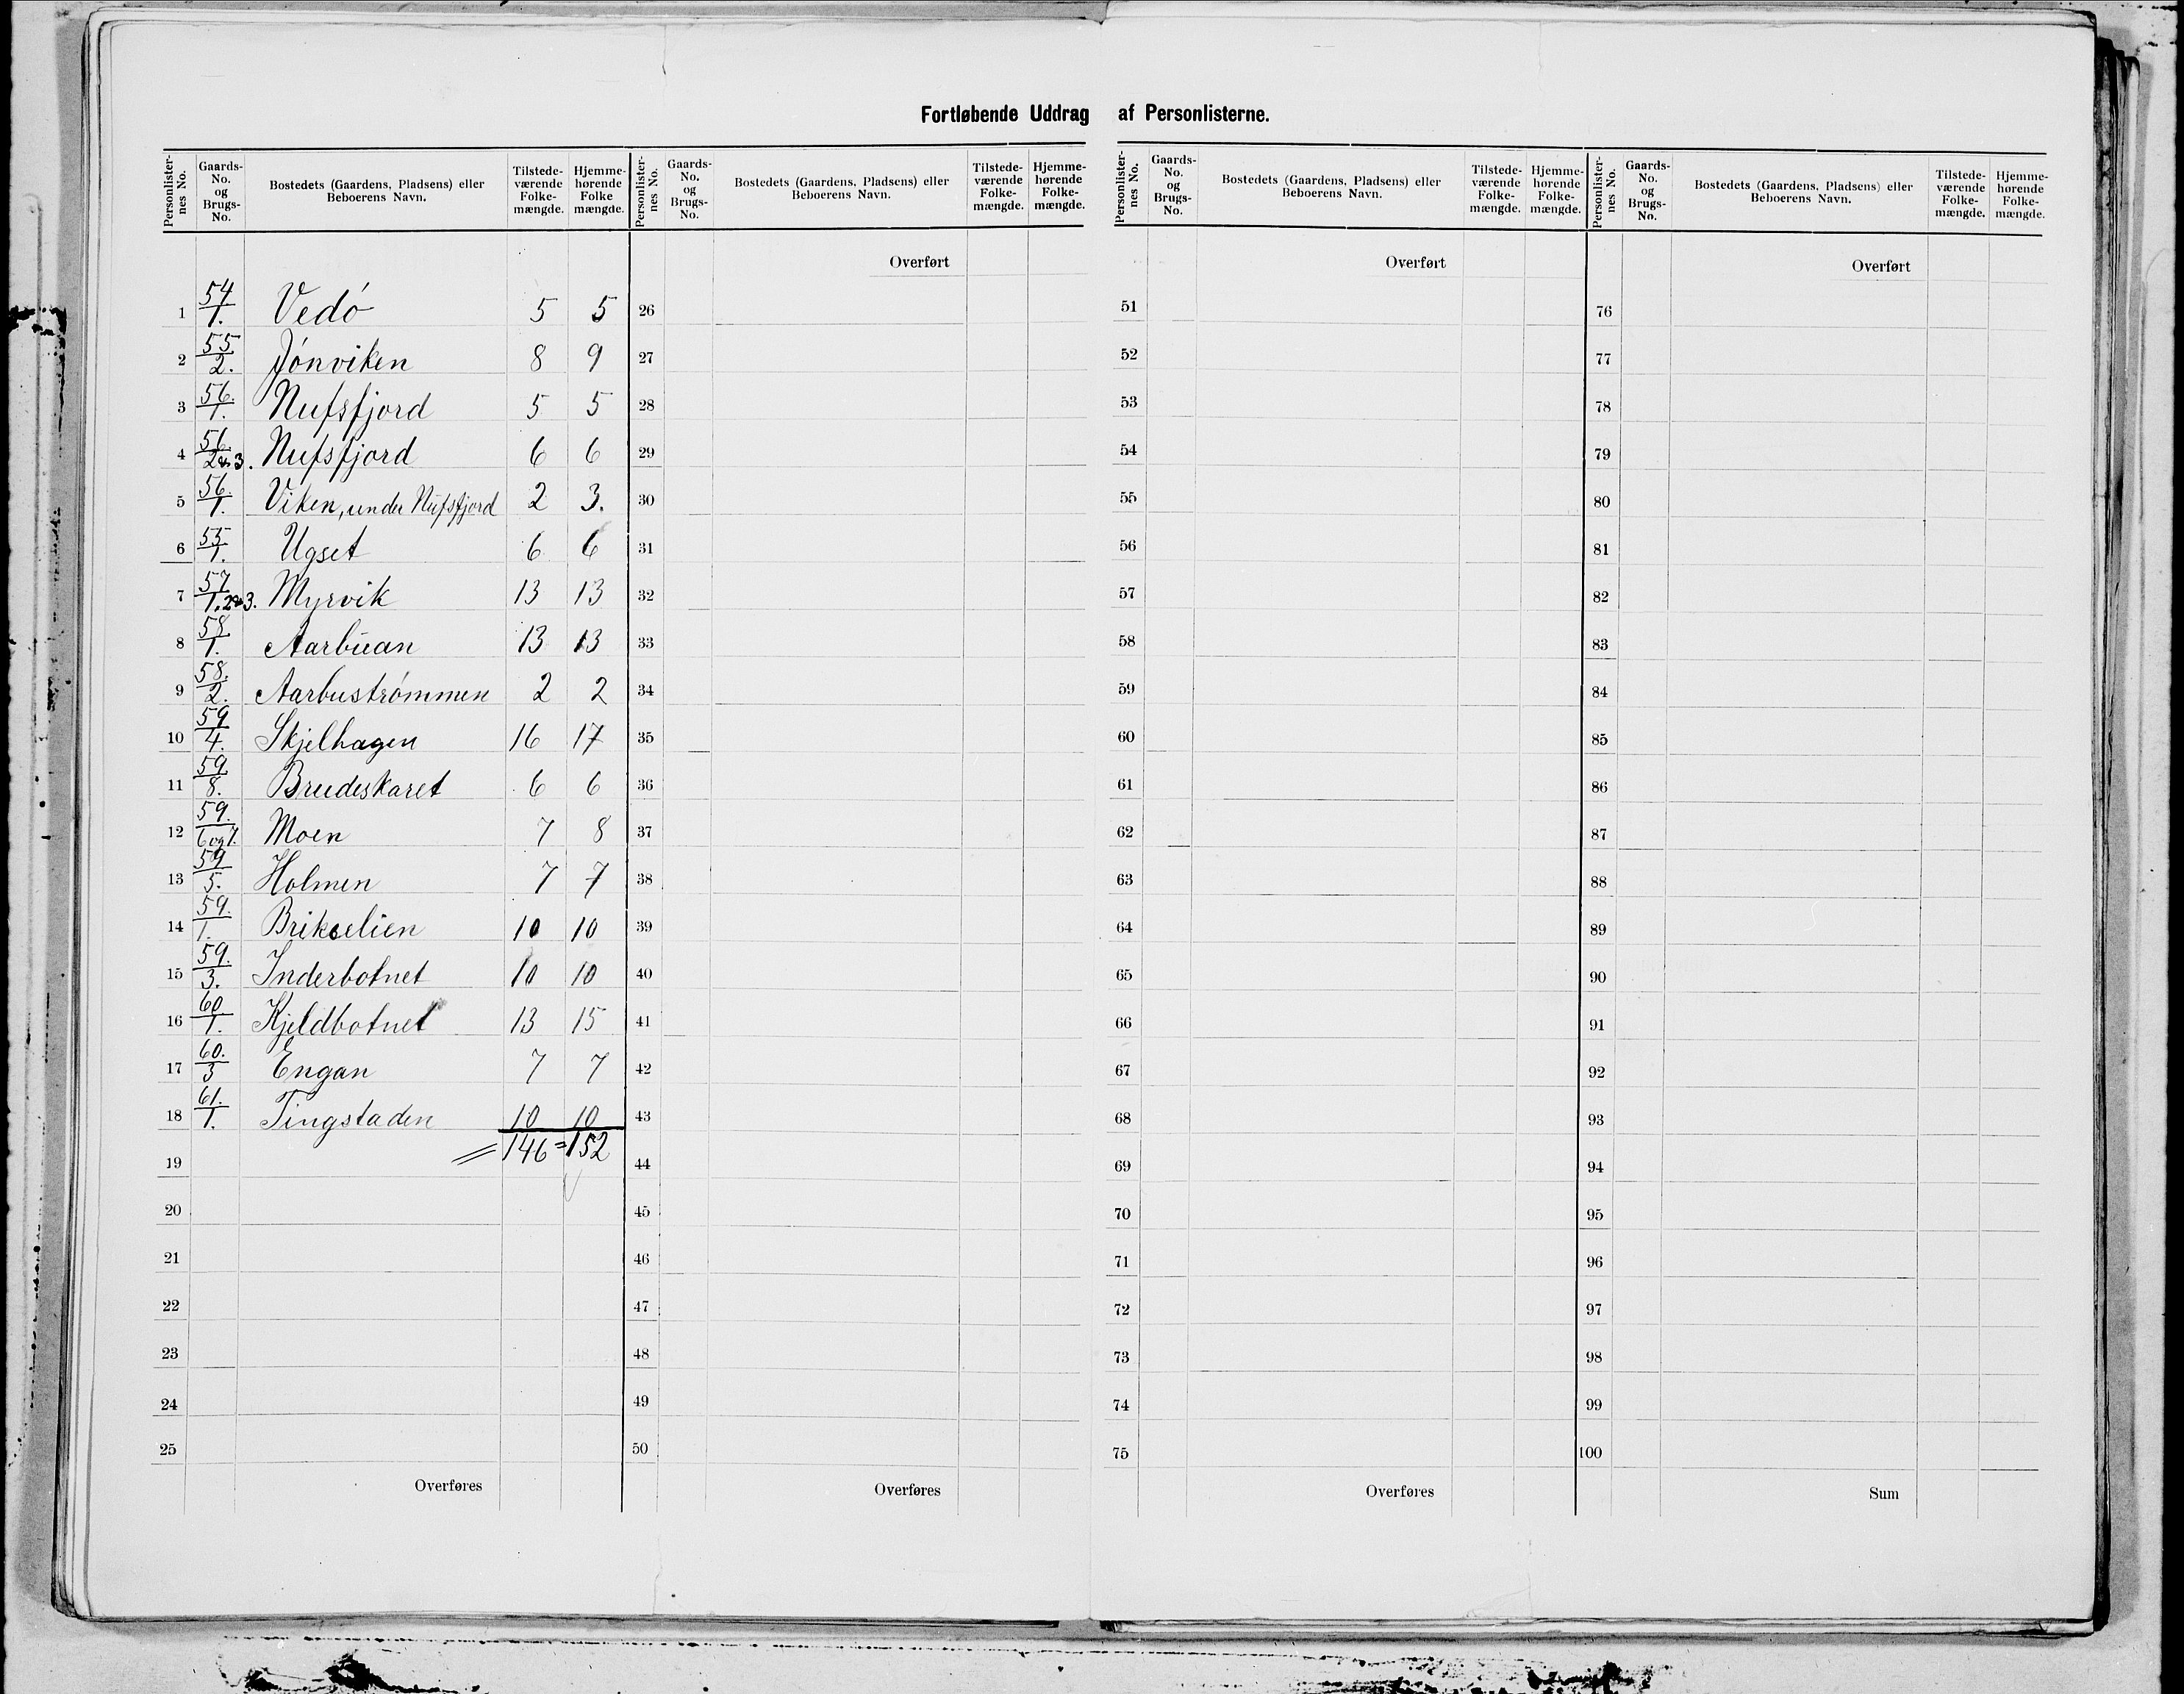 Fortløbende Uddrag af Personlisterne.
Personlister-nes No. | Gaards-No. og Brugs-No. | Bostedets (Gaardens, Pladsens) eller Beboerens Navn. | Tilstede-værende Folke-mængde. | Hjemme-hørende Folke mængde.
1 54/1. Vedó 5 5
2 55/2. Jónviken 8 9
3 56./1. Nufsfjord 5 5
4 56./2 & 3. Nufsfjord 6 6
5 56./1. Viken, under Nufsfjord 2 3.
6 55/1. Ugset 6 6
7 57/1. 2 & 3. Myrvik 13 13
8 58/1. Aarbuan 13 13
9 58./2. Aarbustrómmen 2 2
10 59/4. Skjelhagen 16 17
11 59/8. Brudeskaret 6 6
12 59./6 og 7. Moen 7 8
13 59/5. Holmen 7 7
14 59./1. Brikselien 10 10
15 59./3. Inderbotnet 10 10
16 60/1. Kjeldbotnet 13 15
17 60./3 Engan 7 7
18 61./1. Tingstaden 10 10
19 = 146 = 152
20
21
22
23
24
25
Overføres
Personlister-nes No. | Gaards-No. og Brugs-No. | Bostedets (Gaardens, Pladsens) eller Beboerens Navn. | Tilstede-værende Folke-mængde. | Hjemme-hørende Folke-mængde.
Overført
26
27
28
29
30
31
32
33
34
35
36
37
38
39
40
41
42
43
44
45
46
47
48
49
50
Overføres
Personlister-nes No. | Gaards-No. og Brugs-No. | Bostedets (Gaardens, Pladsens) eller Beboerens Navn. | Tilstede-værende Folke-mængde. | Hjemme-hørende Folke-mængde.
Overført
51
52
53
54
55
56
57
58
59
60
61
62
63
64
65
66
67
68
69
70
71
72
73
74
75
Overføres
Personlister-nes No. | Gaards-No. og Brugs-No. | Bostedets (Gaardens, Pladsens) eller Beboerens Navn. | Tilstede-værende Folke-mængde. | Hjemme-hørende Folke-mængde.
Overført
76
77
78
79
80
81
82
83
84
85
86
87
88
89
90
91
92
93
94
95
96
97
98
99
100
Sum